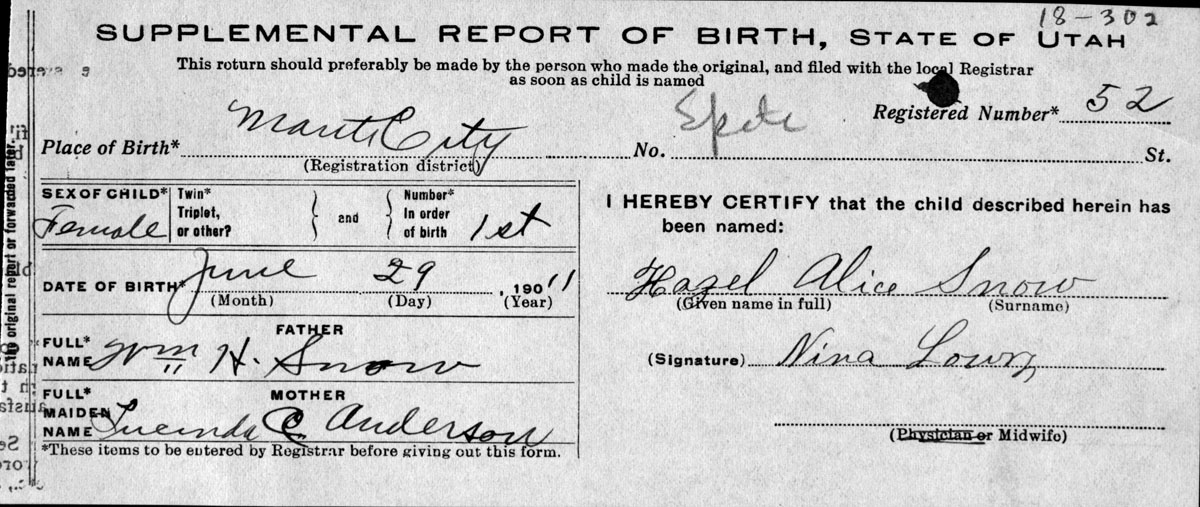 18-302
SUPPLEMENTAL REPORT OF BIRTH, STATE OF UTAH
This return should preferably be made by the person who made the original, and filed with the local Registrar
as soon as child is named
Registered Number* 52
Place of Birth* Manti City No. St.
(Registration district)
SEX OF CHILD* Female Twin* Triplet, or other? and Number* In order of birth 1st
DATE OF BIRTH* June 29, 1911
(Month) (Day) (Year)
FATHER
FULL* NAME Wm H. Snow
MOTHER
FULL* MAIDEN NAME Lucinda C. Anderson
*These items to be entered by Registrar before giving out this form.
I HEREBY CERTIFY that the child described herein has
been named:
Hazel Alice Snow
(Given name in full) (Surname)
(Signature) Nina Lowry
(Physician or Midwife)
the original report or forwarded later.